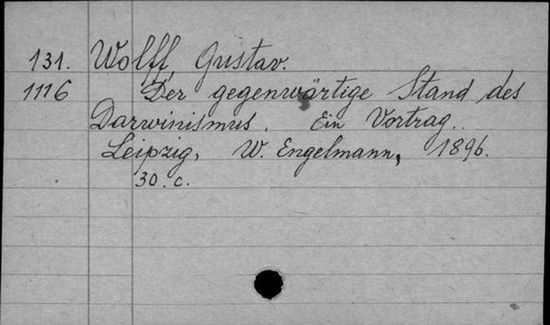 131. Wolff, Gustav.
1116 Der gegenwärtige Stand des
Darwinismus. Ein Vortrag.
Leipzig, W. Engelmann, 1896.
30. c.